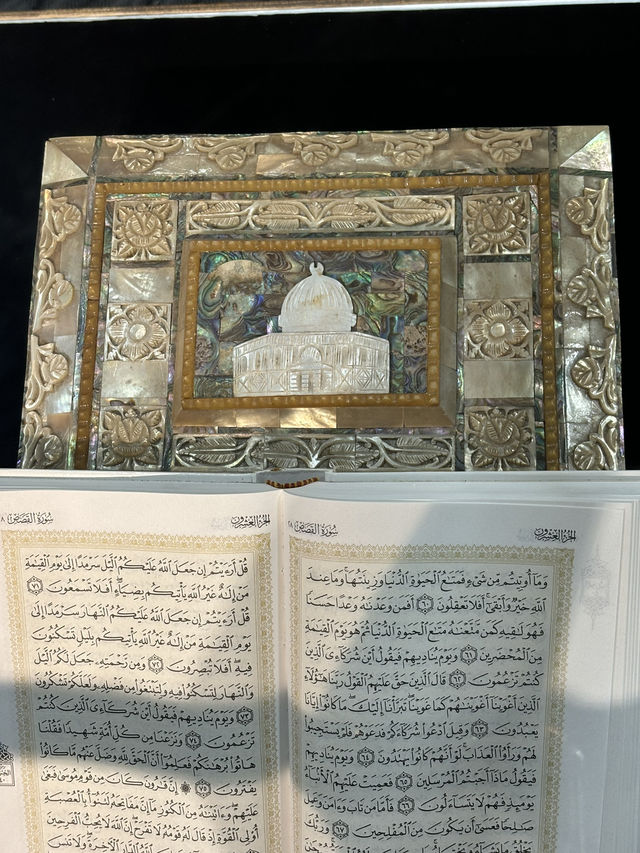 الجزء العشرون سورة القصص ٢٨
وَمَآ أُوتِيتُم مِّن شَىْءٍ فَمَتَٰعُ ٱلْحَيَوٰةِ ٱلدُّنْيَا وَزِينَتُهَا ۚ وَمَا عِندَ
ٱللَّهِ خَيْرٌ وَأَبْقَىٰٓ ۚ أَفَلَا تَعْقِلُونَ ٦٠ أَفَمَن وَعَدْنَٰهُ وَعْدًا حَسَنًا
فَهُوَ لَٰقِيهِ كَمَن مَّتَّعْنَٰهُ مَتَٰعَ ٱلْحَيَوٰةِ ٱلدُّنْيَا ثُمَّ هُوَ يَوْمَ ٱلْقِيَٰمَةِ
مِنَ ٱلْمُحْضَرِينَ ٦١ وَيَوْمَ يُنَادِيهِمْ فَيَقُولُ أَيْنَ شُرَكَآءِىَ ٱلَّذِينَ
كُنتُمْ تَزْعُمُونَ ٦٢ قَالَ ٱلَّذِينَ حَقَّ عَلَيْهِمُ ٱلْقَوْلُ رَبَّنَا هَٰٓؤُلَآءِ
ٱلَّذِينَ أَغْوَيْنَآ أَغْوَيْنَٰهُمْ كَمَا غَوَيْنَا ۖ تَبَرَّأْنَآ إِلَيْكَ ۖ مَا كَانُوٓا۟ إِيَّانَا
يَعْبُدُونَ ٦٣ وَقِيلَ ٱدْعُوا۟ شُرَكَآءَكُمْ فَدَعَوْهُمْ فَلَمْ يَسْتَجِيبُوا۟
لَهُمْ وَرَأَوُا۟ ٱلْعَذَابَ ۚ لَوْ أَنَّهُمْ كَانُوا۟ يَهْتَدُونَ ٦٤ وَيَوْمَ يُنَادِيهِمْ
فَيَقُولُ مَاذَآ أَجَبْتُمُ ٱلْمُرْسَلِينَ ٦٥ فَعَمِيَتْ عَلَيْهِمُ ٱلْأَنۢبَآءُ
يَوْمَئِذٍ فَهُمْ لَا يَتَسَآءَلُونَ ٦٦ فَأَمَّا مَن تَابَ وَءَامَنَ وَعَمِلَ
صَٰلِحًا فَعَسَىٰٓ أَن يَكُونَ مِنَ ٱلْمُفْلِحِينَ ٦٧ وَرَبُّكَ
يَخْلُقُ مَا يَشَآءُ
الجزء العشرون سورة القصص ٢٨
قُلْ أَرَءَيْتُمْ إِن جَعَلَ ٱللَّهُ عَلَيْكُمُ ٱلَّيْلَ سَرْمَدًا إِلَىٰ يَوْمِ ٱلْقِيَٰمَةِ
مَنْ إِلَٰهٌ غَيْرُ ٱللَّهِ يَأْتِيكُم بِضِيَآءٍ ۖ أَفَلَا تَسْمَعُونَ ٧١
قُلْ أَرَءَيْتُمْ إِن جَعَلَ ٱللَّهُ عَلَيْكُمُ ٱلنَّهَارَ سَرْمَدًا إِلَىٰ
يَوْمِ ٱلْقِيَٰمَةِ مَنْ إِلَٰهٌ غَيْرُ ٱللَّهِ يَأْتِيكُم بِلَيْلٍ تَسْكُنُونَ
فِيهِ ۖ أَفَلَا تُبْصِرُونَ ٧٢ وَمِن رَّحْمَتِهِۦ جَعَلَ لَكُمُ ٱلَّيْلَ
وَٱلنَّهَارَ لِتَسْكُنُوا۟ فِيهِ وَلِتَبْتَغُوا۟ مِن فَضْلِهِۦ وَلَعَلَّكُمْ تَشْكُرُونَ
٧٣ وَيَوْمَ يُنَادِيهِمْ فَيَقُولُ أَيْنَ شُرَكَآءِىَ ٱلَّذِينَ كُنتُمْ
تَزْعُمُونَ ٧٤ وَنَزَعْنَا مِن كُلِّ أُمَّةٍ شَهِيدًا فَقُلْنَا
هَاتُوا۟ بُرْهَٰنَكُمْ فَعَلِمُوٓا۟ أَنَّ ٱلْحَقَّ لِلَّهِ وَضَلَّ عَنْهُم مَّا كَانُوا۟
يَفْتَرُونَ ٧٥ ۞ إِنَّ قَٰرُونَ كَانَ مِن قَوْمِ مُوسَىٰ فَبَغَىٰ
عَلَيْهِمْ ۖ وَءَاتَيْنَٰهُ مِنَ ٱلْكُنُوزِ مَآ إِنَّ مَفَاتِحَهُۥ لَتَنُوٓأُ بِٱلْعُصْبَةِ
أُو۟لِى ٱلْقُوَّةِ إِذْ قَالَ لَهُۥ قَوْمُهُۥ لَا تَفْرَحْ ۖ إِنَّ ٱللَّهَ لَا يُحِبُّ ٱلْفَرِحِينَ
ٱللَّهُ ٱلدَّارَ ٱلْءَاخِرَةَ ۖ وَلَا تَنسَ